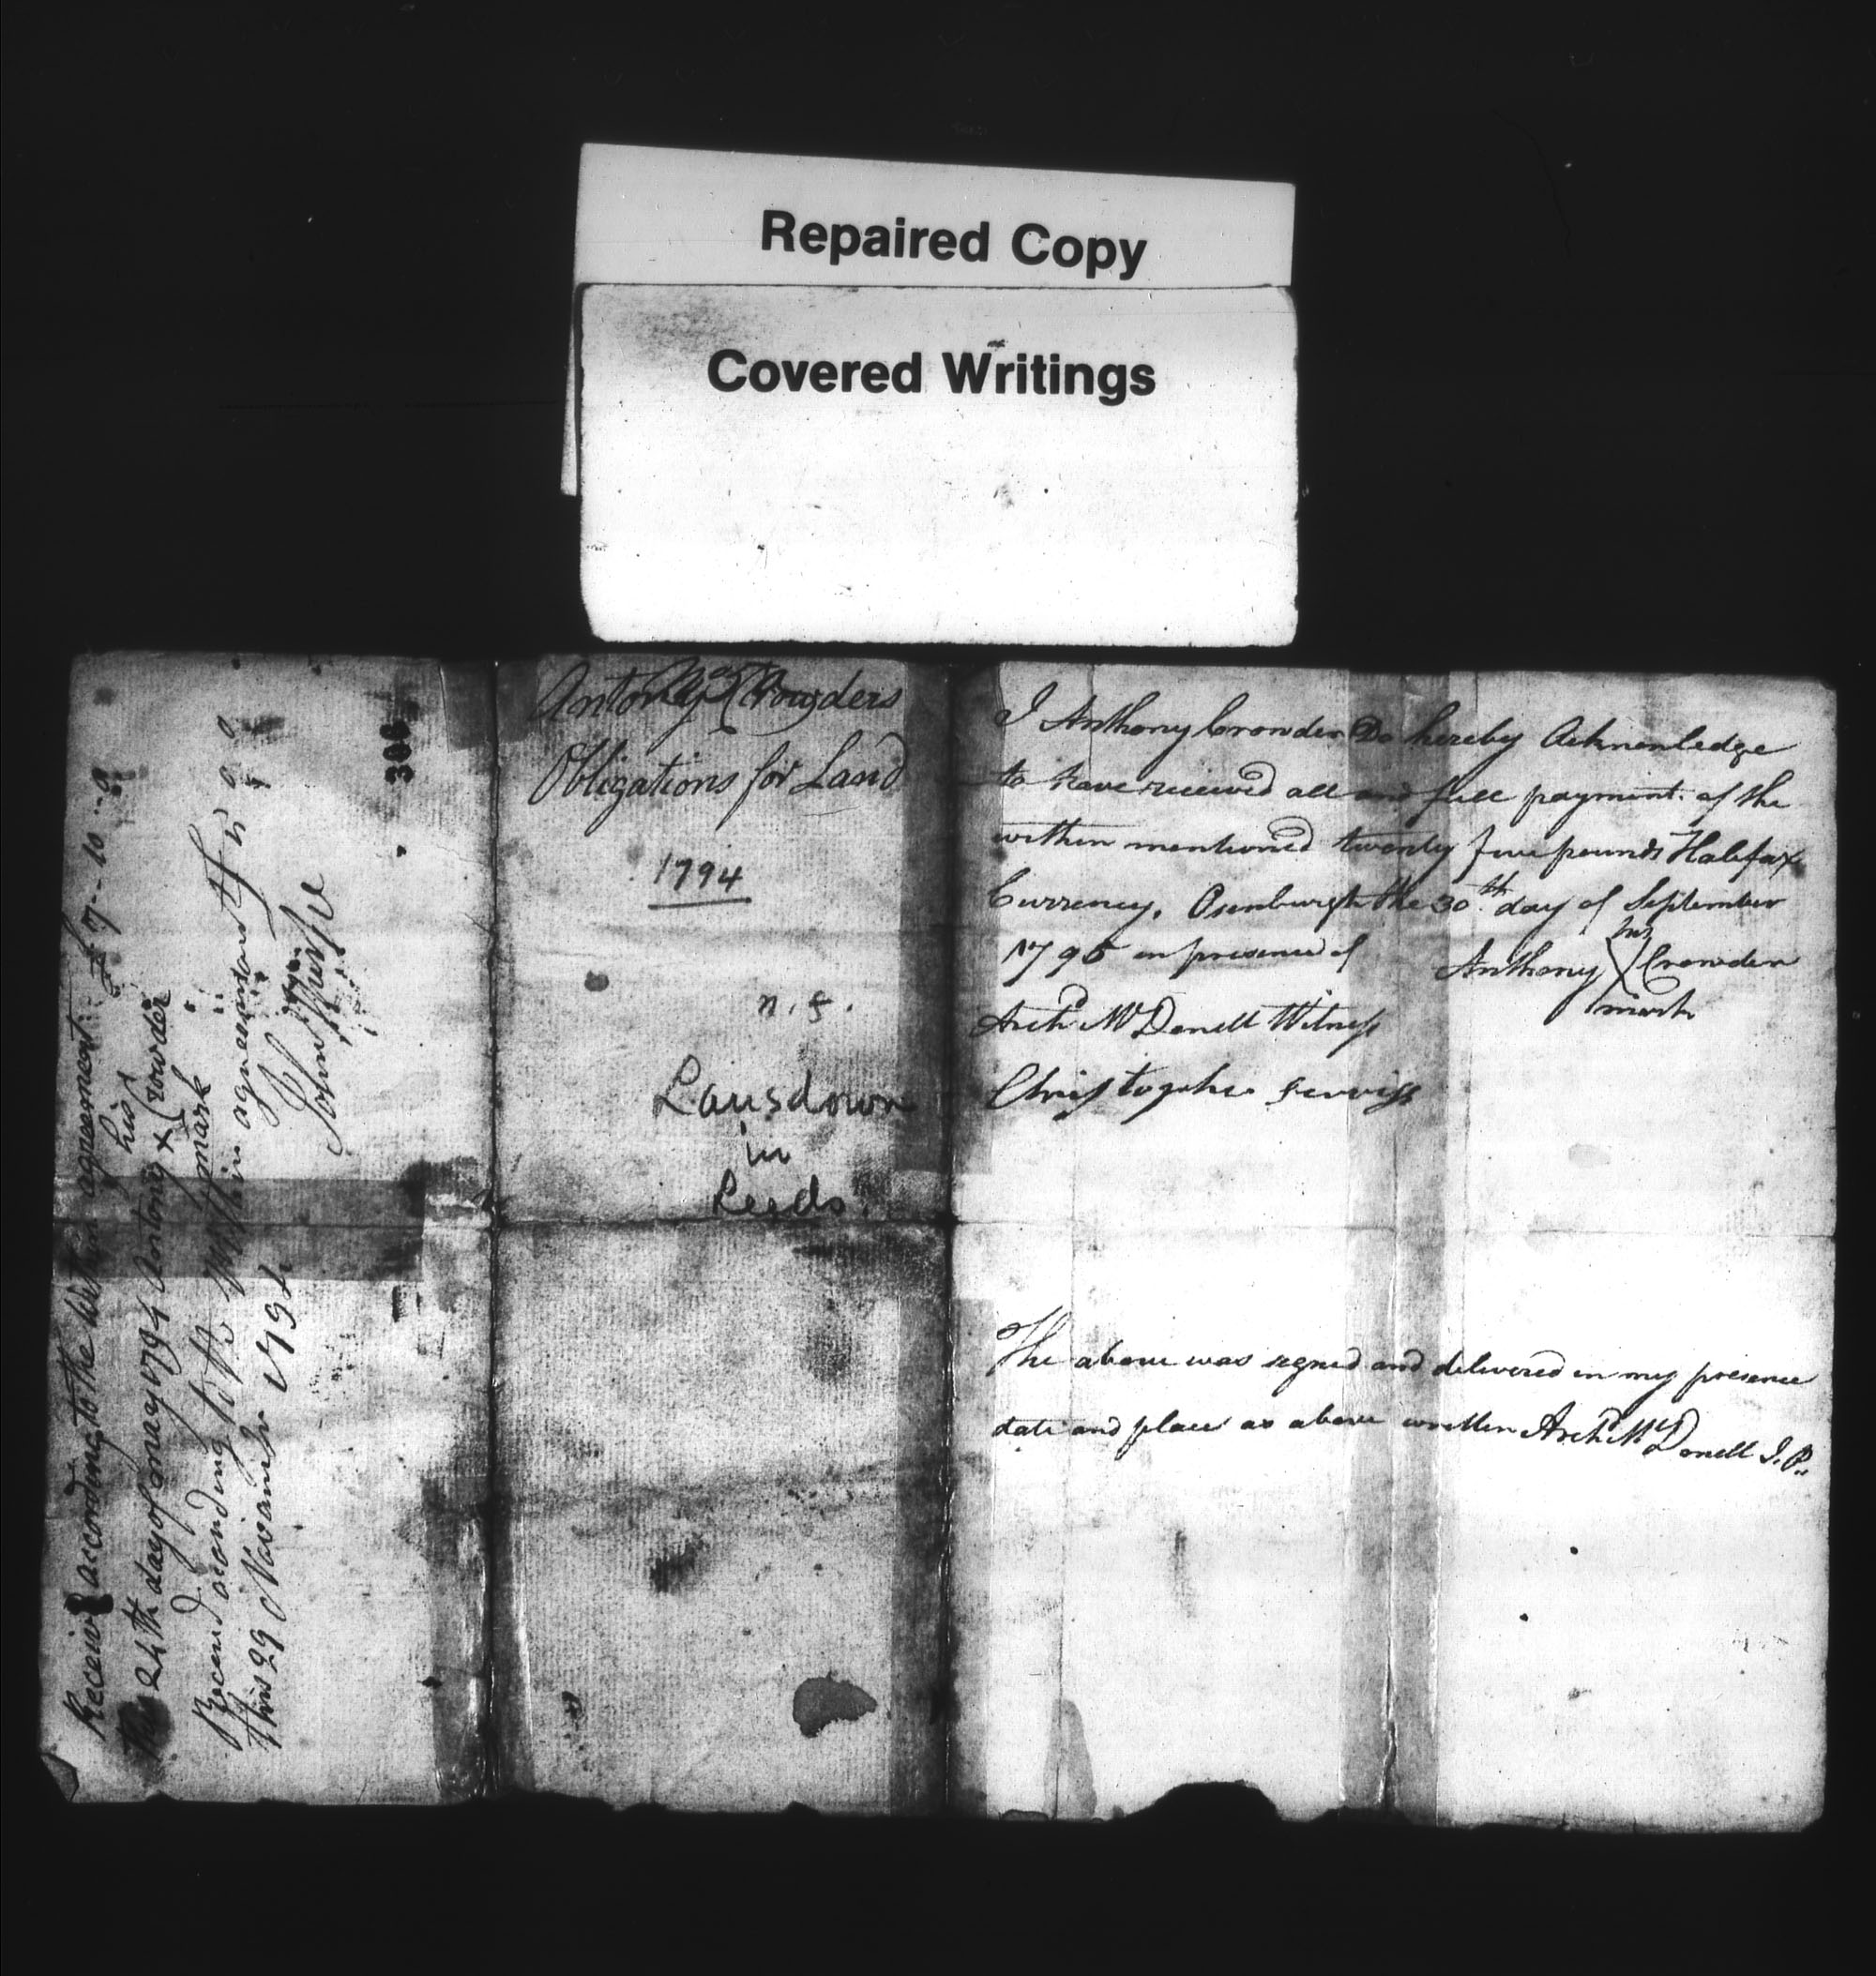 Repaired Copy
Covered Writings
Receiv according to the Within agreement £ 7-10-0
This 24th day of may 1794 Antony X Crowder
his
mark
Receivd according to the Within agreement
this 29 Novambr 1794
308
Antony Crowders
Obligations for Land
1794
n. f.
Lansdown
in
Leeds.
I Anthony Crowder Do hereby Acknowledge
to have received all and full payment of the
within mentioned twenty five pounds Halifax
Currency. Osenburgh the 30th day of September
1795 in presence of
Anthony X Crowder
his
mark
Archd McDonell Witness
Christopher Serviss
The above was signed and delivered in my presence
date and place as above written Archd McDonell J.P.